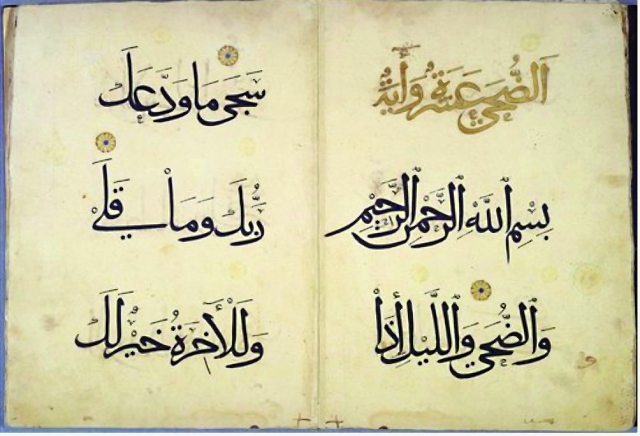 الضُّحَى عَشَرَةُ وَأَيَةٌ
بِسْمِ اللَّهِ الرَّحْمَنِ الرَّحِيمِ
وَالضُّحَى وَاللَّيْلِ إِذَا
سَجَى مَا وَدَّعَكَ
رَبُّكَ وَمَا قَلَى
وَلَلْأَخِرَةُ خَيْرٌ لَكَ